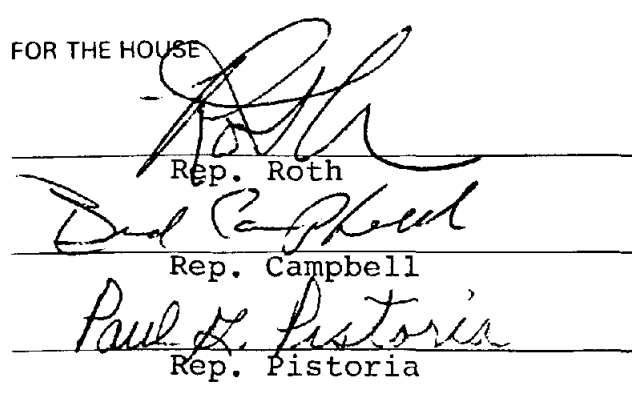 FOR THE HOUSE
Roth
Rep. Roth
Bud Campbell
Rep. Campbell
Paul G. Pistoria
Rep. Pistoria